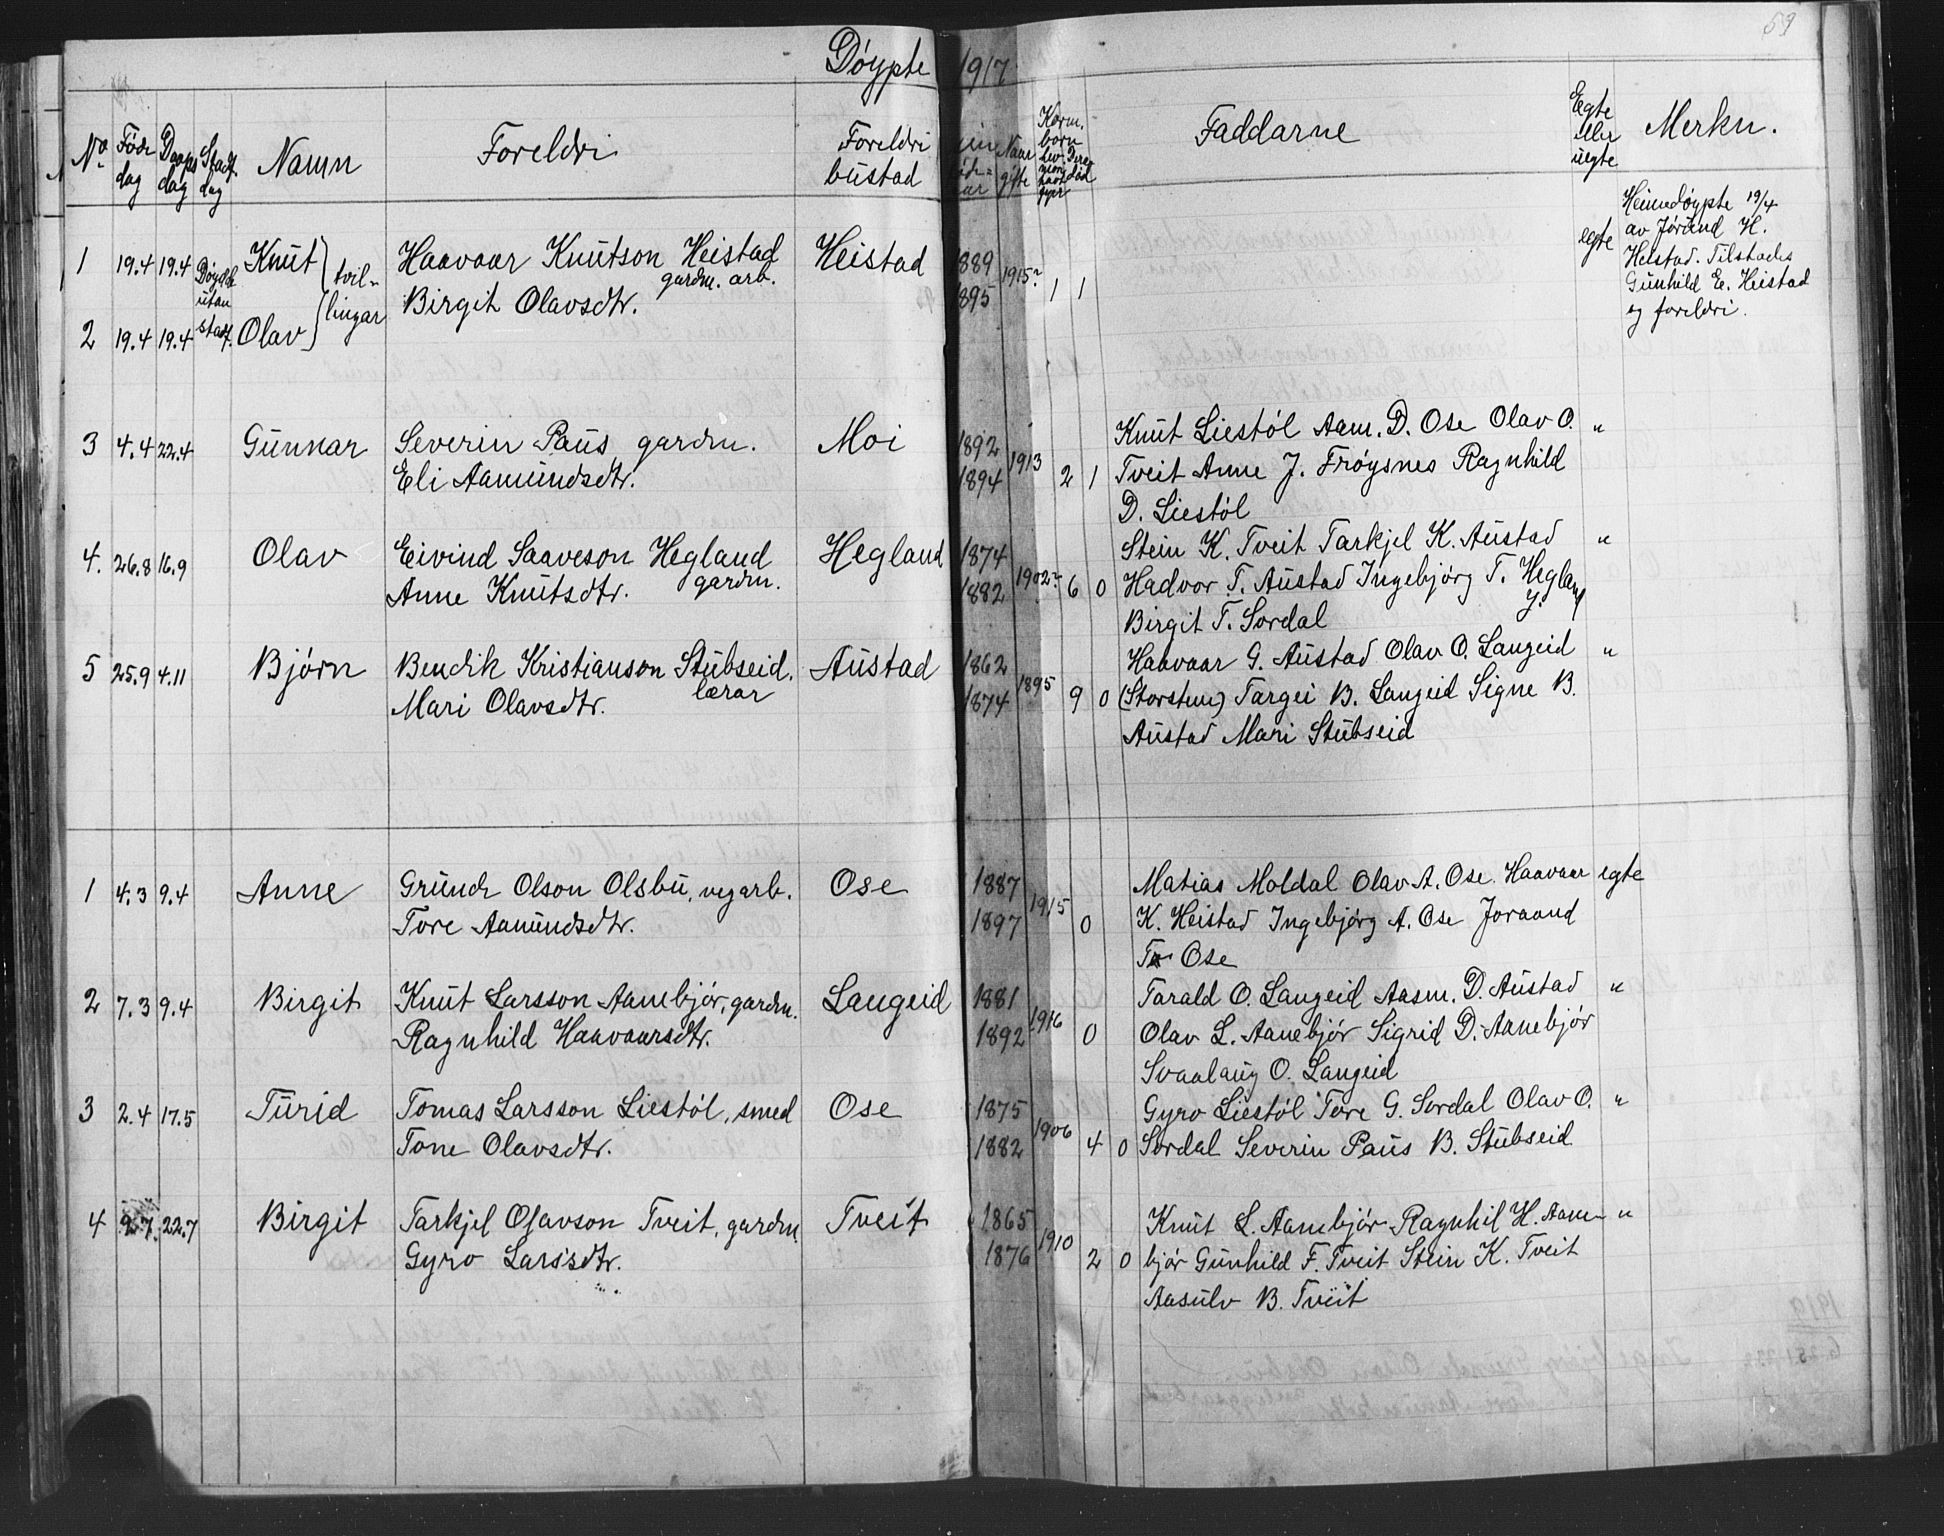 59
Døypte 1917
No Føde dag Daaps dag Stadf. dag Namn Foreldri Foreldri bustad gifte Faddarne Egte eller uegte Merkn.
1 19.4 19.4 Døydde utan stadf. Knut tvillingar Haavaar Knutson Heistad gardm. arb. Heistad 1889 1915 1 1 egte
Birgit Olavsdtr. 1895
Heimedøypte 19/4
av Jørund H.
Heistad. Tilstades
Gunhild E. Heistad
og foreldri.
2 19.4 19.4 Olav
3 4.4 22.4 Gunnar Severin Paus gardm. Moi 1892 1913 Knut Liestøl Aam. D. Ose Olav O. "
Eli Aamundsdtr. 1894 2 1 Tveit Anne J. Frøysnes Ragnhild
D. Liestøl
4. 26.8 16.9 Olav Eivind Saaveson Hegland Hegland 1874 1902 Stein K. Tveit Tarkjel K. Austad "
Anne Knutsdtr. gardm. 1882 6 0 Hadvor T. Austad Ingebjørg T. Hegland
Birgit T. Sordal y.
5 25.9 4.11 Bjørn Bendik Kristianson Stubseid. Austad 1862 1895 Haavaar G. Austad Olav O. Langeid "
Mari Olavsdtr. lærar 1874 9 0 (Storstun) Targei B. Langeid Signe B.
Austad Mari Stubseid
1 4.3 9.4 Anne Grunde Olson Olsbu, vegarb. Ose 1887 1915 Matias Moldal Olav A. Ose Haavaar egte
Tore Aamundsdtr. 1897 0 K. Heistad Ingebjørg A. Ose Joraand
Ose
2 7.3 9.4 Birgit Knut Larsson Aanebjør, gardm. Langeid 1881 1916 Tarald O. Langeid Aasm. D. Austad "
Ragnhild Haavaarsdtr. 1892 0 Olav L. Aanebjør Sigrid D. Aanebjør
Svaalaug O. Langeid
3 2.4 17.5 Turid Tomas Larsson Liestøl, smed Ose 1875 1906 Gyro Liestøl Tore G. Sordal Olav O. "
Tone Olavsdtr. 1882 4 0 Sordal Severin Paus B. Stubseid
4 9.7 22.7 Birgit Tarkjel Olavson Tveit, gardm. Tveit 1865 1910 Knut L. Aanebjør Ragnhil H. Aane- "
Gyro Larsdtr. 1876 2 0 bjør Gunhild F. Tveit Stein K. Tveit
Aasulv B. Tveit